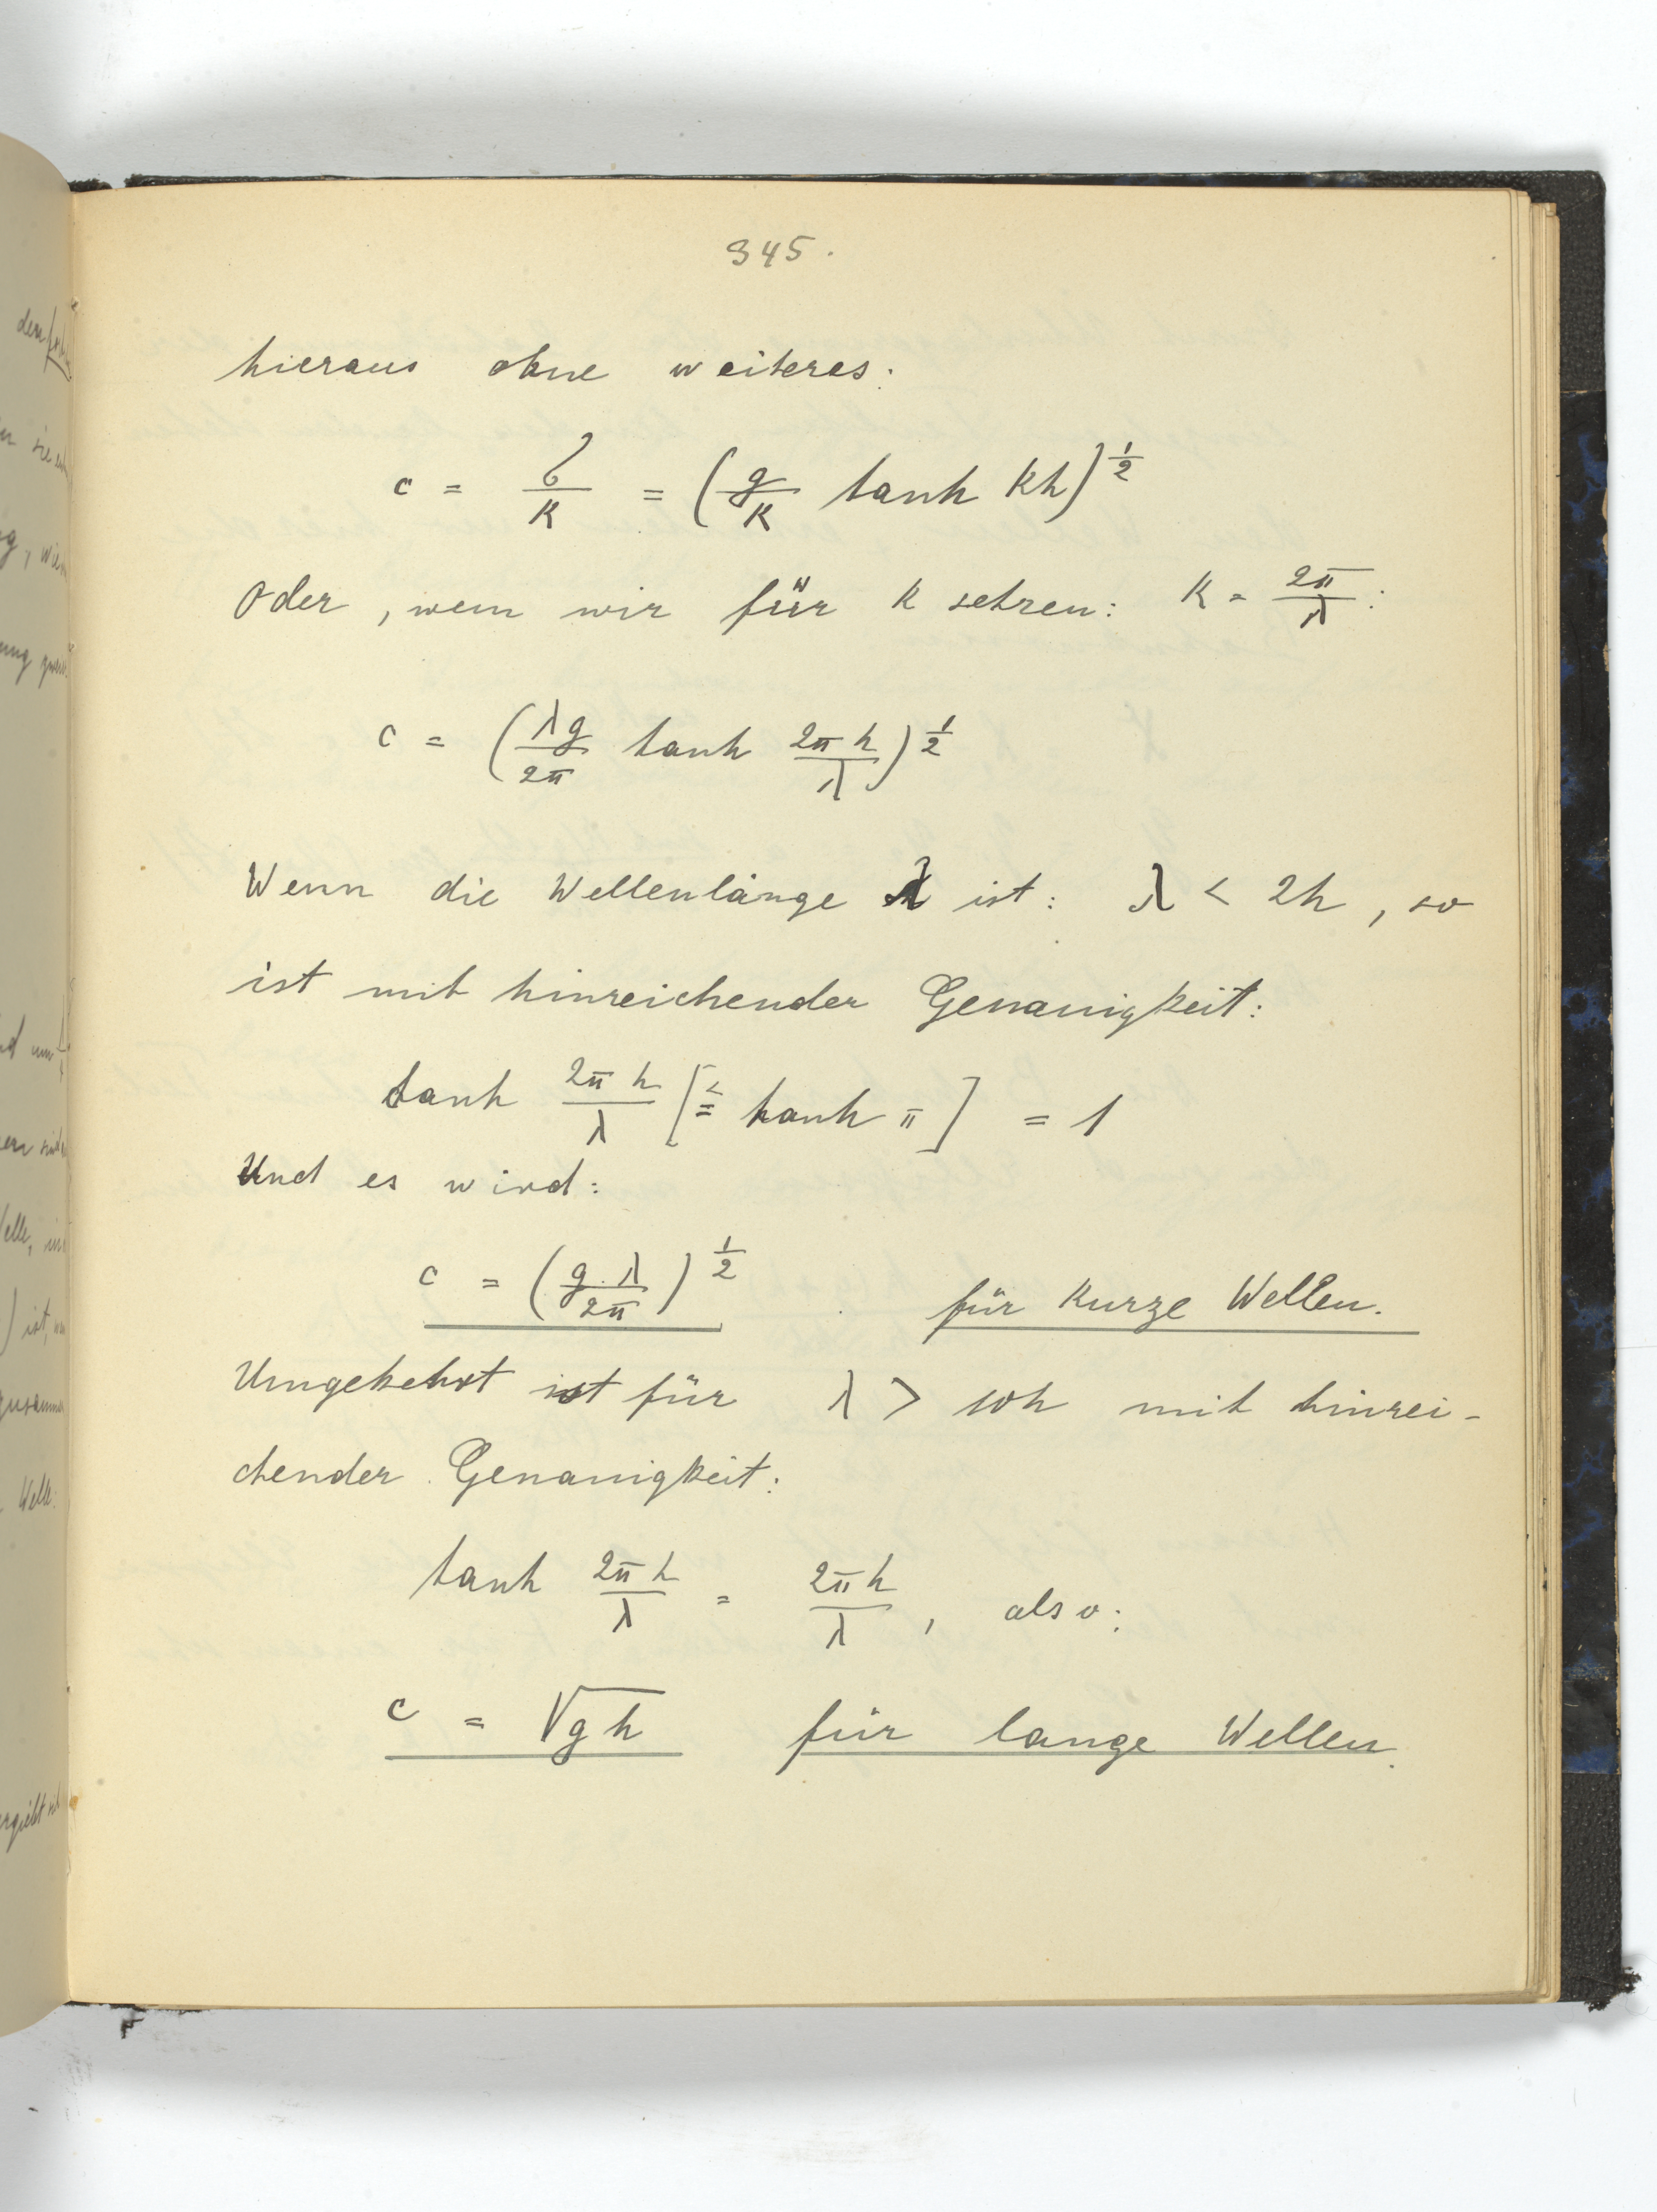 345.
hieraus ohne weiteres:
c = σ/k = (g/k tanh kh)^1/2
Oder, wenn wir für k setzen: k = 2π/λ:
c = (λg/2π tanh 2πh/λ)^1/2
Wenn die Wellenlänge λ ist: λ < 2h, so
ist mit hinreichender Genauigkeit:
tanh 2πh/λ [≦ tanh π] = 1
Und es wird:
c = (g.λ/2π)^1/2 für kurze Wellen.
Umgekehrt ist für λ > 10h mit hinrei-
chender Genauigkeit:
tanh 2πh/λ = 2πh/λ, also:
c = √gh für lange Wellen.